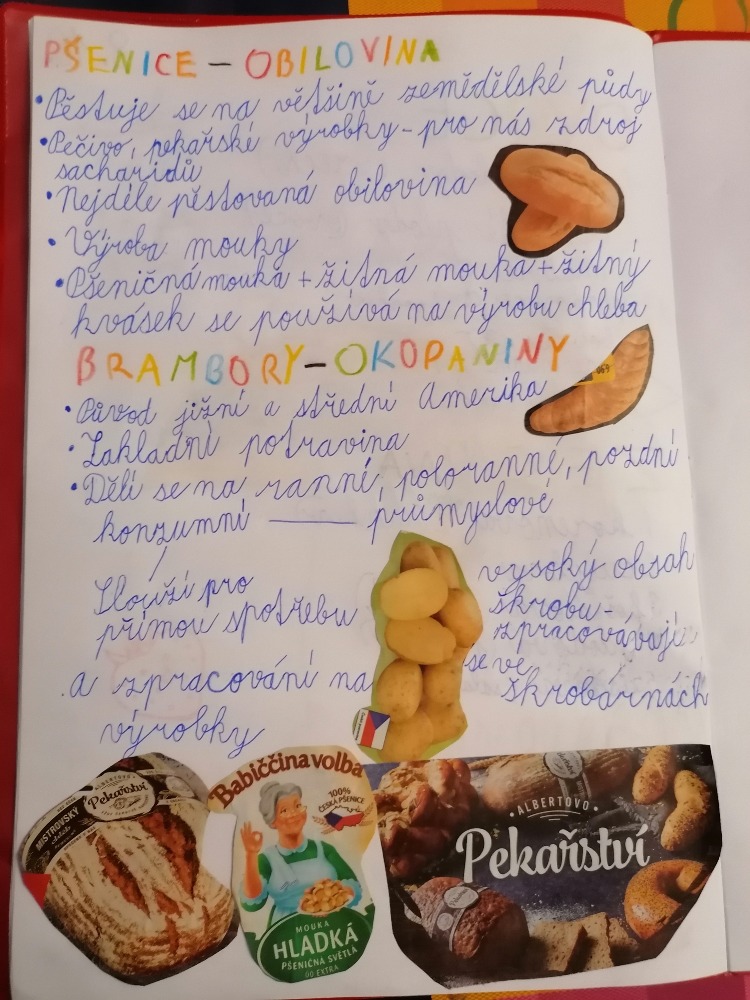 PŠENICE – OBILOVINA
• Pěstuje se na většině zemědělské půdy
• Pečivo, pekařské výrobky - pro nás zdroj
sacharidů
• Nejdéle pěstovaná obilovina
• Výroba mouky
• Pšeničná mouka + žitná mouka + žitný
kvásek se používá na výrobu chleba
BRAMBORY – OKOPANINY
• Původ jižní a střední Amerika
069
• Základní potravina
• Dělí se na ranné, poloranné, pozdní
konzumní — průmyslové
Slouží pro
přímou spotřebu
a zpracování na
výrobky
vysoký obsah
škrobu -
zpracovávají
se ve
škrobárnách
ALBERTOVO
Pekařství
MISTROVSKÝ
chléb
Babiččina volba
100%
ČESKÁ PŠENICE
MOUKA
HLADKÁ
PŠENIČNÁ SVĚTLÁ
00 EXTRA
• ALBERTOVO •
Pekařství